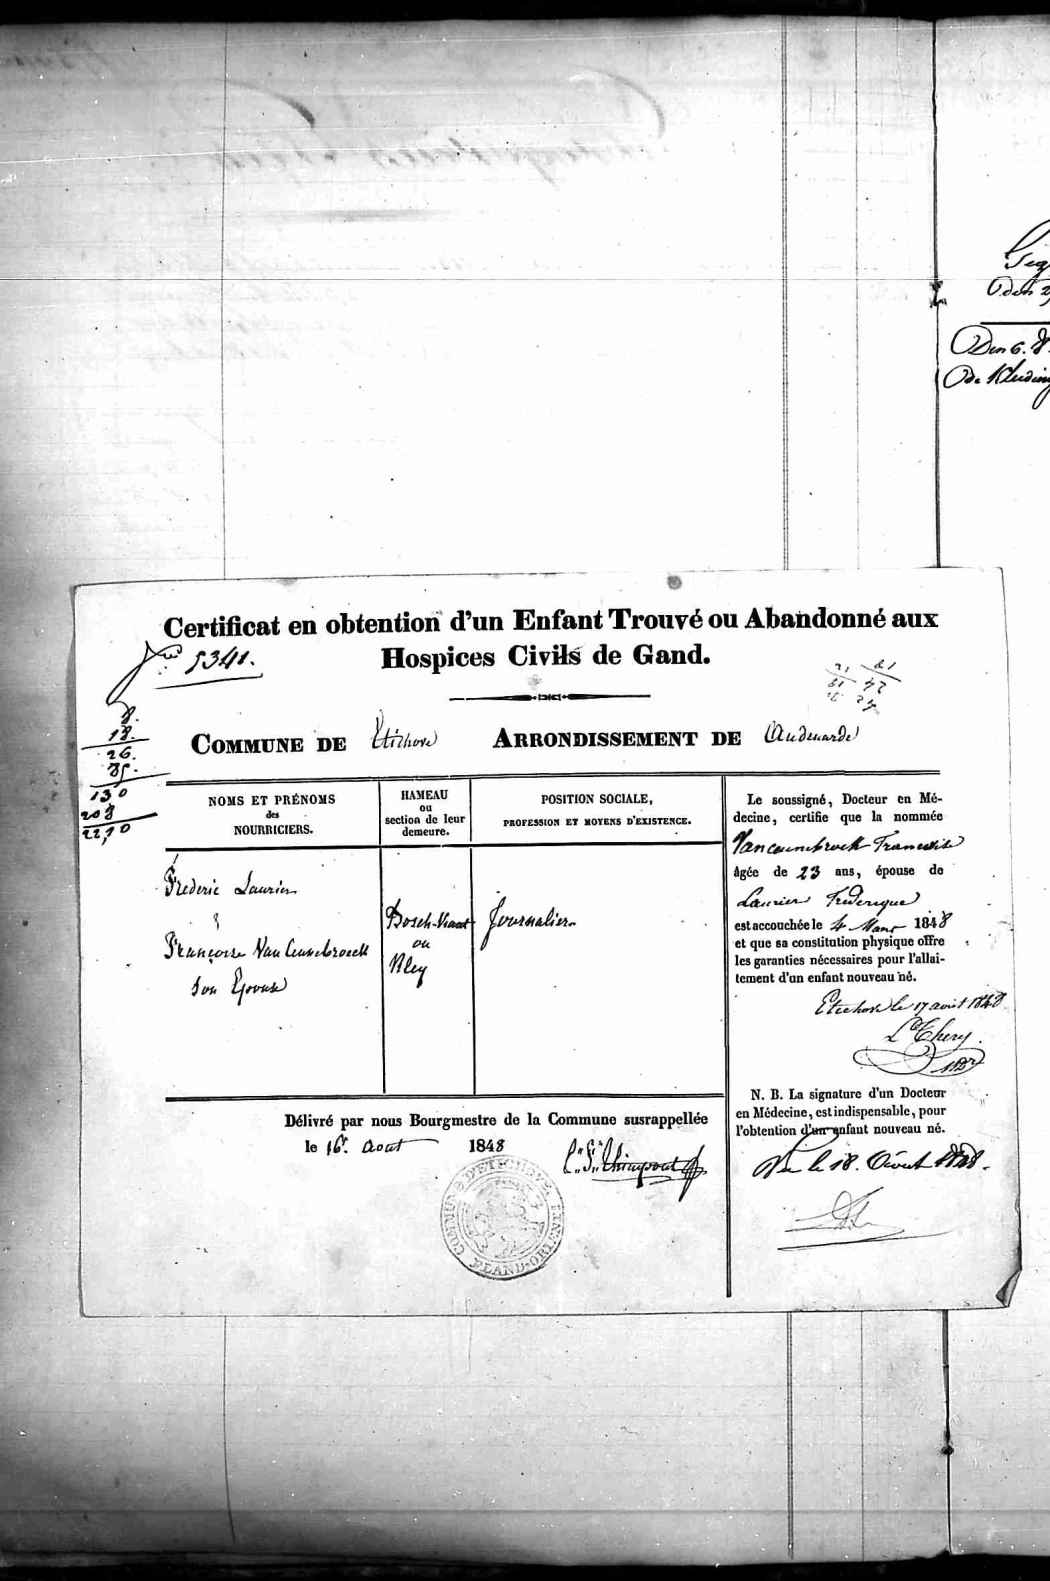 Certificat en obtention d'un Enfant Trouvé ou Abandonné aux
Hospices Civils de Gand.
N° 5341.
8.
18.
26.
85.
130
208
22,10
COMMUNE DE Etichove ARRONDISSEMENT DE Audenarde
NOMS ET PRÉNOMS
des
NOURRICIERS.
HAMEAU
ou
section de leur
demeure.
POSITION SOCIALE,
PROFESSION ET MOYENS D'EXISTENCE.
Fréderic Laurier
&
Françoise Van Ceunebroeck
son Epouse
Bosch-
ou
Kley
Journalier
Le soussigné, Docteur en Mé-
decine, certifie que la nommée
Vanceunebroeck Francoise
âgée de 23 ans, épouse de
Laurier Frederique
est accouchée le 4 Mars 1848
et que sa constitution physique offre
les garanties nécessaires pour l'allai-
tement d'un enfant nouveau né.
Etichove le 17 août 1848
L Thery
N. B. La signature d'un Docteur
en Médecine, est indispensable, pour
l'obtention d'un enfant nouveau né.
Vu le 18. Août 1848.
Délivré par nous Bourgmestre de la Commune susrappellée
le 16 Aout 1848
Thienpont
COMMUNE D'ETICHOVE
FLAND. ORIENTE
Den 6. 8